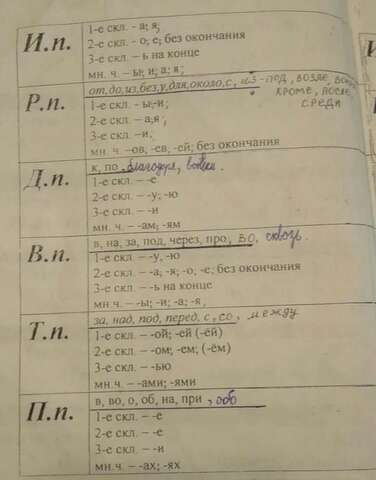 И.п.
1-е скл. - а; я;
2-е скл. - о; е; без окончания
3-е скл. – ь на конце
мн. ч. – ы; и; а; я;
Р.п.
от, до, из, без, у, для, около, с, из-под, возле,
кроме, после,
среди
1-е скл. - ы;-и;
2-е скл. – а;я;
3-е скл. –и.
мн. ч. –ов, -ев, -ей; без окончания
Д.п.
к, по, благодаря,
1-е скл. – -е
2-е скл. – -у; -ю
3-е скл. – -и
мн.ч. – -ам; -ям
В.п.
в, на, за, под, через, про, во, сквозь.
1-е скл. – -у, -ю
2-е скл. – -а; -я; -о, -е; без окончания
3-е скл. – -ь на конце
мн ч. – -ы; -и; -а; -я,
Т.п.
за, над, под, перед, с, со, между
1-е скл. – -ой; -ей (-ёй)
2-е скл. – -ом; -ем; (-ём)
3-е скл. – -ью
мн.ч. – -ами; -ями
П.п.
в, во, о, об, на, при, обо
1-е скл. – -е
2-е скл. – -е
3-е скл. – -и
мн.ч. – -ах; -ях